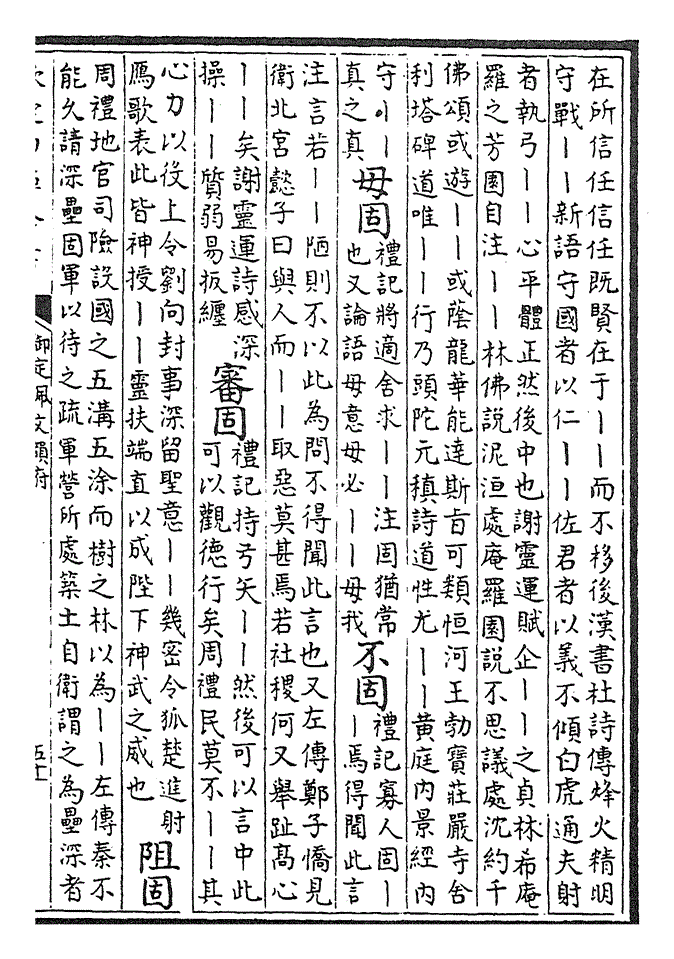 在所信任信任既賢在于丨丨而不移後漢書杜詩傳烽火精明
守戰丨丨新語守國者以仁丨丨佐君者以義不傾白虎通夫射
者執弓丨丨心平體正然後中也謝靈運賦企丨丨之貞林希庵
羅之芳園自注丨丨林佛說泥洹處庵羅園說不思議處沈約千
佛頌或游丨丨或蔭龍華能達斯旨可類恒河王勃寶莊嚴寺舍
利塔碑道唯丨丨行乃頭陀元稹詩道性尤丨丨黃庭內景經內
守丨丨
真之真
毋固
禮記將適舍求丨丨注固猶常
也又論語毋意毋必丨丨毋我
不固
禮記寡人固丨
丨焉得聞此言
注言若丨丨陋則不以此為問不得聞此言也又左傳鄭子憍見
衛北宮懿子曰與人而丨丨取惡莫甚焉若社稷何又舉趾高心
丨丨矣謝靈運詩感深
操丨丨質弱易扳纏
審固
禮記持弓矢丨丨然後可以言中此
可以觀德行矣周禮民莫不丨丨其
心力以役上令劉向封事深留聖意丨丨幾密令狐楚進射
鴈歌表此皆神授丨丨靈扶端直以成陛下神武之威也
阻固
周禮地官司險設國之五溝五涂而樹之林以為丨丨左傳秦不
能久請深壘固軍以待之疏軍營所處築土自衛謂之為壘深者
御定佩文韻府